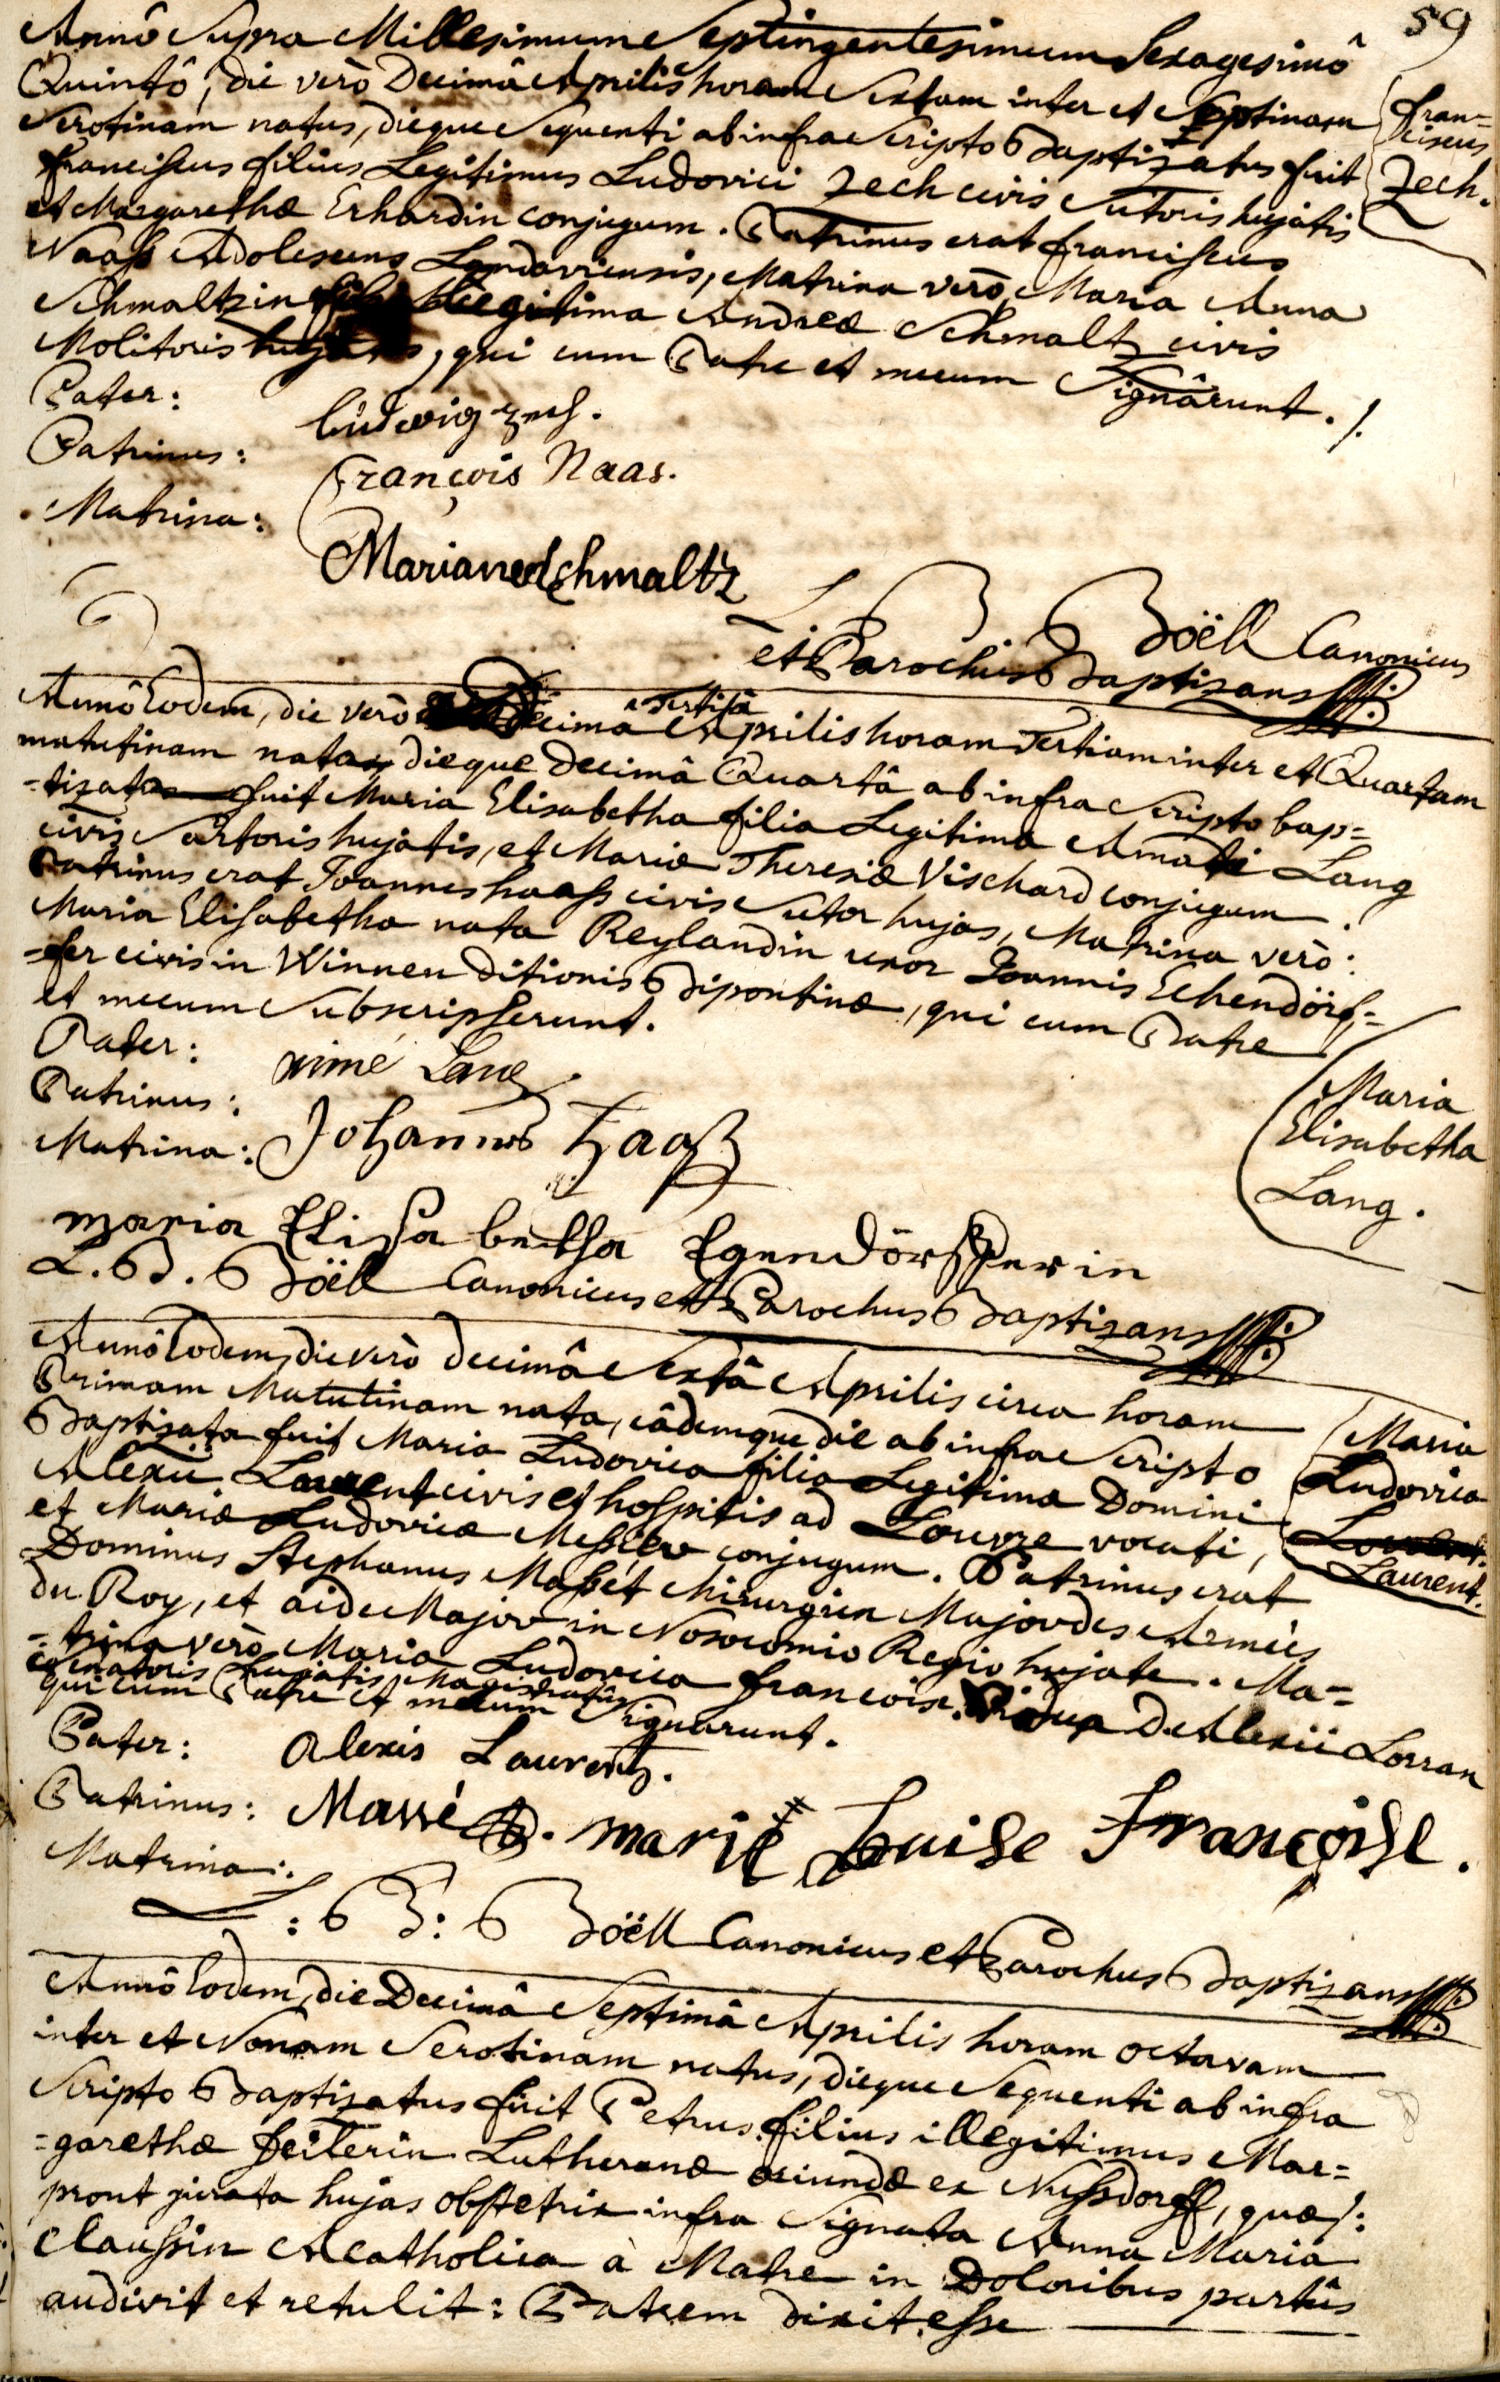 59
Annô Supra Millesimum Septingentesimum Sexagesimô
Quintô, die verò Decimâ Aprilis horam Sextam inter et Septimam
Serotinam natus, dieque Sequenti ab infra Scripto Baptizatus fuit
franciscus filius Legitimus Ludovici Zech civis Sutoris hujatis
et Margarethæ Erhardin conjugum. Patrinus erat franciscus
Naass Adolescens Landaviensis, Matrina verò Maria Anna
Schmaltzin filia Legitima Andreæ Schmaltz civis
Molitoris hujatis, qui cum Patre et mecum Signârunt. /.
fran=
ciscus
Zech.
Pater: Ludwig Zech.
Patrinus: François Naas.
Matrina:
Mariane Schmaltz
L B Boëll Canonicus
et Parochus Baptizans
Annô Eodem, die verò Decimâ Tertiâ Aprilis horam Tertiam inter et Quartam
matutinam nata, dieque Decimâ Quartâ ab infra Scripto bap=
=tizata fuit Maria Elisabetha filia Legitima Amati Lang
civis Sartoris hujatis, et Mariæ Theresiæ Vischard conjugum.
Patrinus erat Joannes haass civis Sutor hujas, Matrina verò:
Maria Elisabetha nata Reylandin uxor Joannis Echendörf=
=fer civis in Winnen ditionis Bipontinæ, qui cum Patre
et mecum Subscripserunt.
Maria
Elisabetha
Lang.
Pater: aimé Lang
Patrinus: Johannes Haaß
Matrina:
maria Elisabetha Egendörfferin
L. B. Boëll Canonicus et Parochus Baptizans
Annô Eodem, die verò Decimâ Sextâ Aprilis circa horam
Primam Matutinam nata, eâdemque die ab infra Scripto
Baptizata fuit Maria Ludovica filia Legitima Domini
Alexii Laurent civis et hospitis ad Louvre vocati,
et Mariæ Ludovicæ conjugum. Patrinus erat
Dominus Stephanus Chirurgien Major des Armées
du Roy, et aide Major in Nosocomio Regio hujate. Ma=
=trina verò Maria Ludovica francoise Vidua D. Alexii Lorran
Senatoris hujatis Magistratûs
qui cum Patre et mecum Signarunt.
Maria
Ludovica
Laurent.
Pater: Alexis Laurent.
Patrinus: Massé. marie Luise Françoise.
Matrina:
L: B: Boëll Canonicus et Parochus Baptizans
Annô Eodem, die Decimâ Septimâ Aprilis horam Octavam
inter et Nonam Serotinam natus, dieque Sequenti ab infra
Scripto Baptizatus fuit Petrus filius illegitimus Mar=
=garethæ feiterin Lutheranæ oriundæ ex Nussdorff, quæ /:
prout jurata hujas obstetrix infra Signata Anna Maria
Claussin Acatholica à Matre in Doloribus partûs
audivit et retulit: Patrem dixit esse